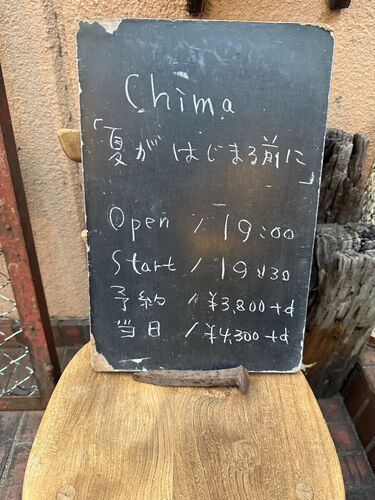 Chima
「夏がはじまる前に」
Open / 19:00
Start / 19:30
予約 / ¥3,800+d
当日 / ¥4,300+d